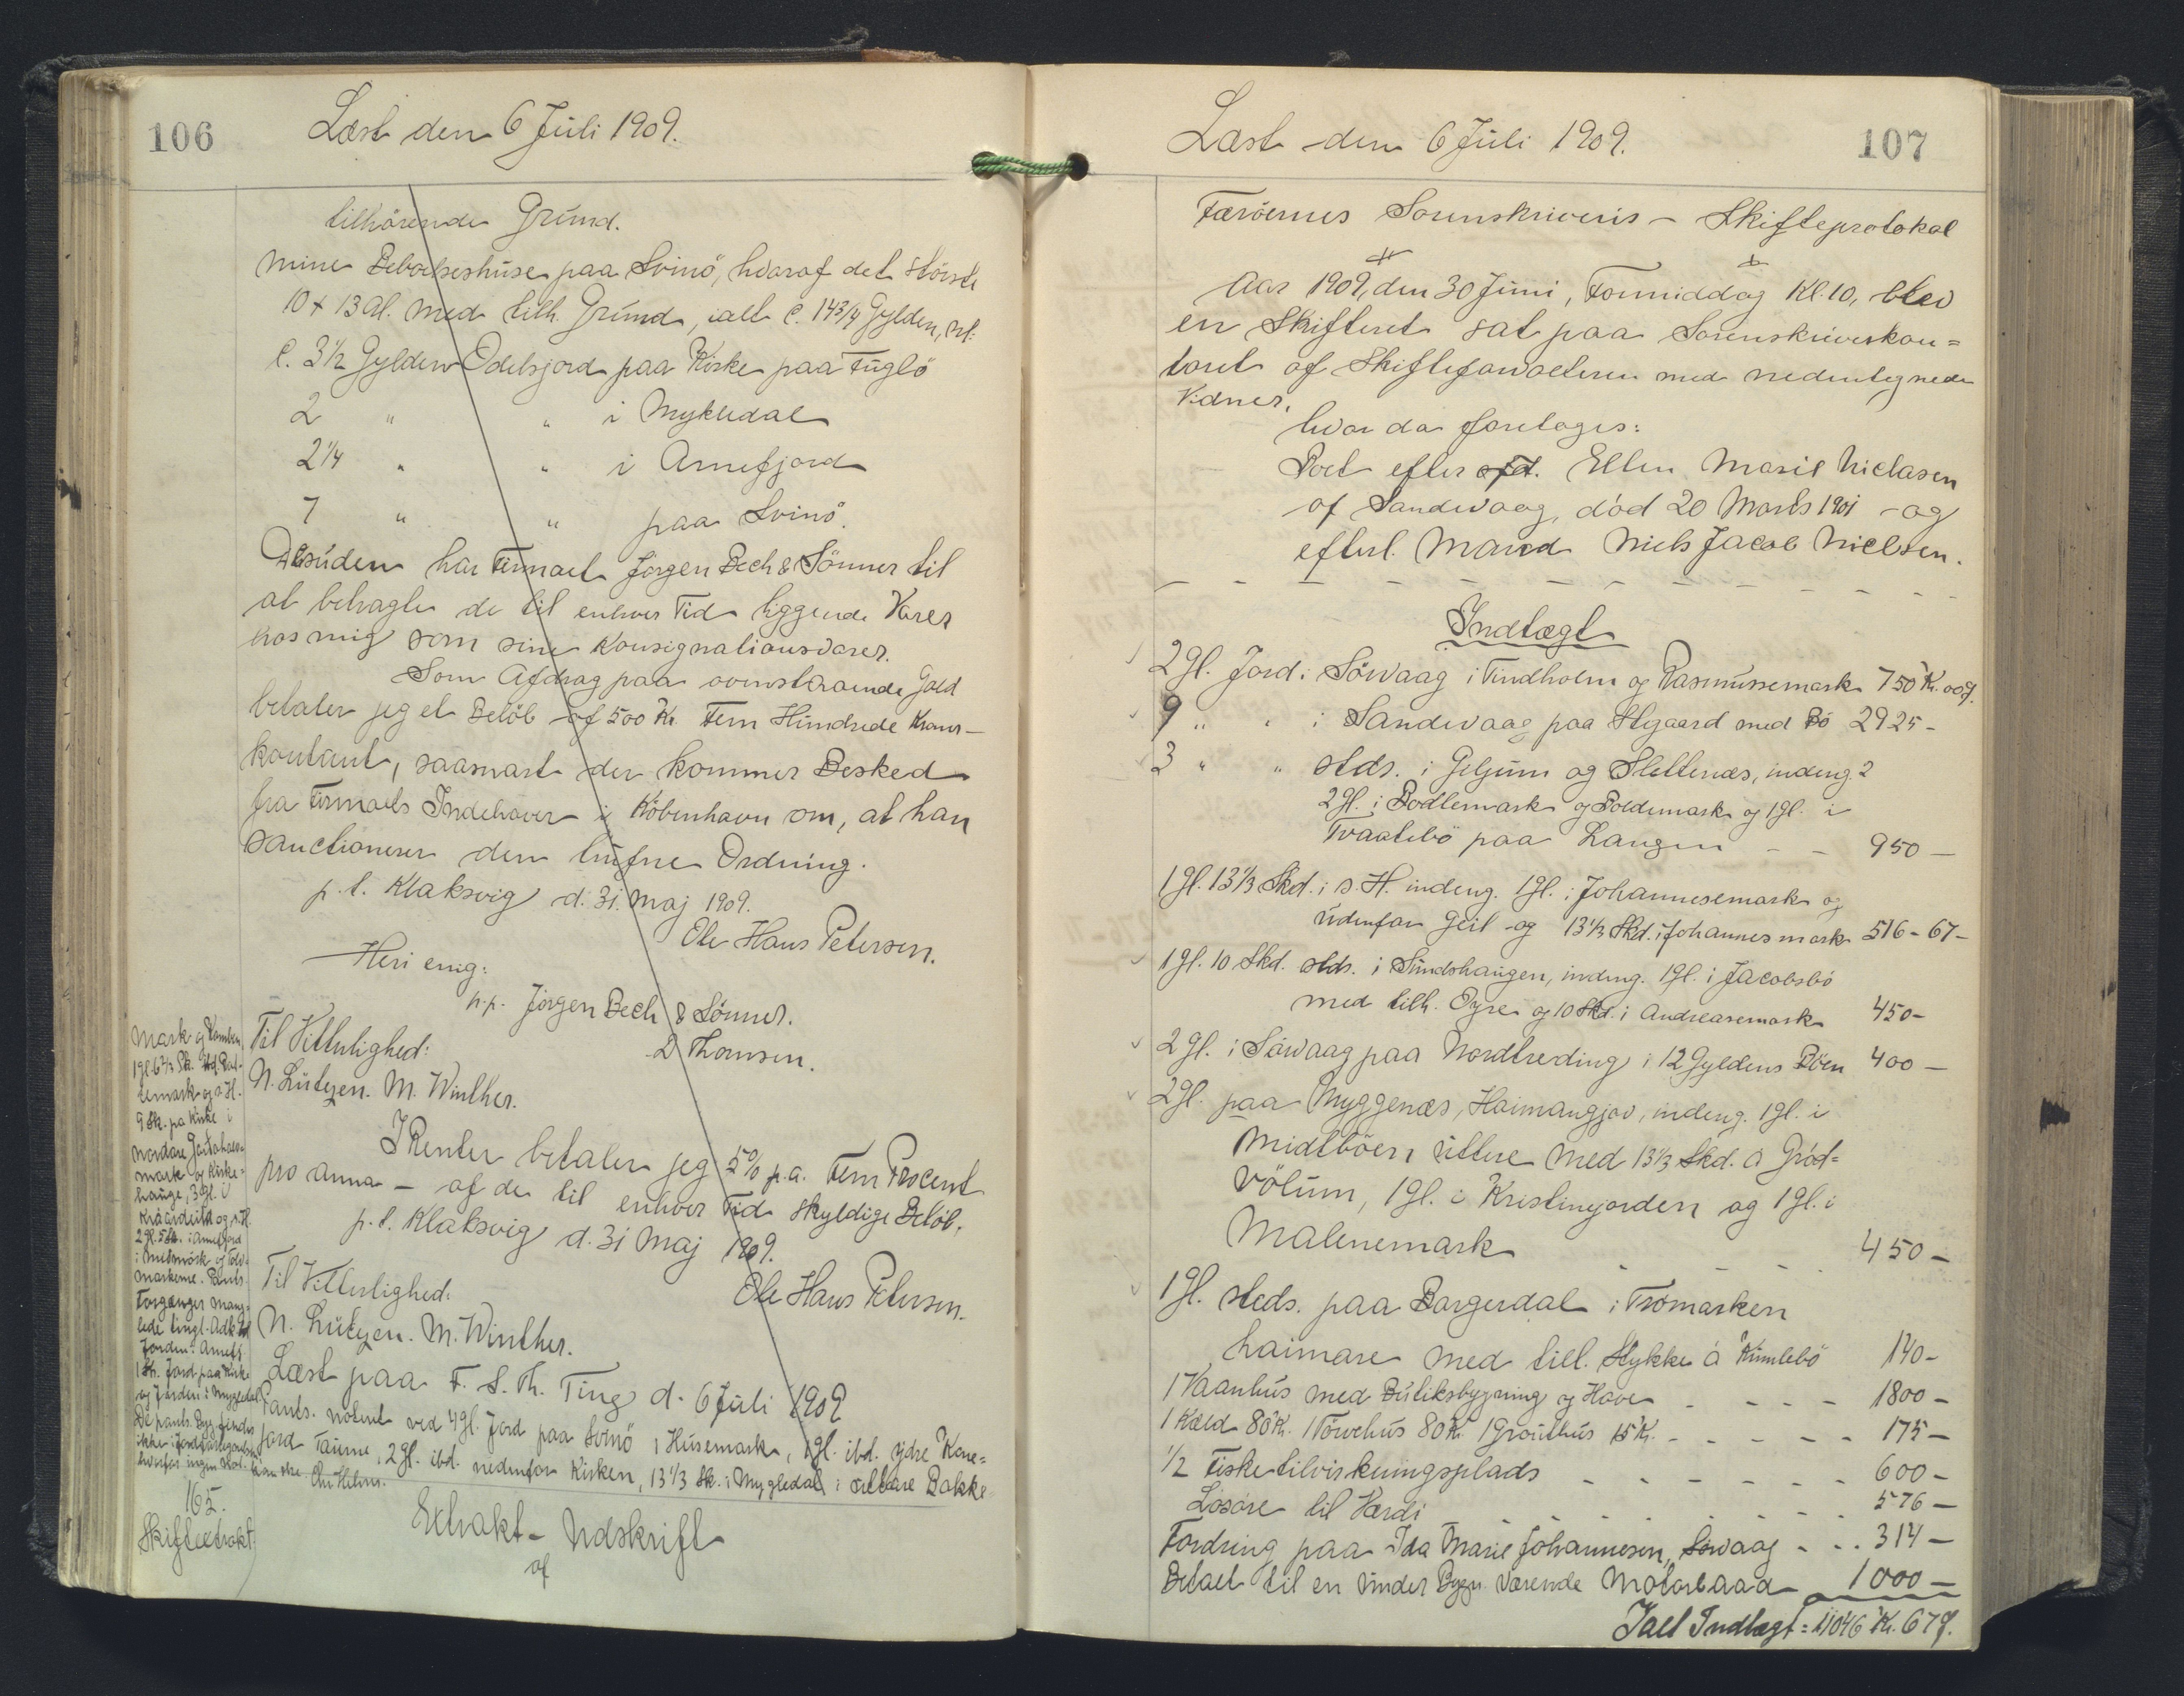 106
Læst den 6 Juli 1909.
tilhörende Grund.
mine Beboelseshuse paa Svinö, hvoraf det störste
10 x 13 Al. med tilh. Grund, ialt c. 14 3/4 Gylden, nl:
c. 3 1/2 Gylden Odelsjord paa Kirke paa Fuglö
2 " " i Mykledal
2 1/4 " " i Arnefjord
7 " " paa Svinö.
Desuden har Firmaet Jörgen Bech & Sönner til
at betragte de til enhver Tid liggende Varer
hos mig som sine Konsignationsvarer.
Som Afdrag paa ovenstaaende Gæld
betaler jeg et Belöb af 500 Kr Fem Hundrede Kroner -
kontant, saasnart der kommer Besked
fra Firmaets Indehaver i Köbenhavn om, at han
sanctionerer den trufne Ordning.
p. t. Klaksvig d. 31. Maj 1909.
Ole Hans Petersen.
Heri enig:
p.p. Jörgen Bech & Sönner.
D Thomsen.
Til Vitterlighed:
N. Lützen. M. Winther.
I Renter betaler jeg 5% p.a. Fem Procent
pro anna - af de til enhver Tid skyldige Belöb.
p. t. Klaksvig d. 31 Maj 1909.
Ole Hans Petersen.
Til Vitterlighed:
N. Lützen. M. Winther.
Læst paa F. S. Th. Ting d. 6 Juli 1909
Pants. noteret ved 4 gl. Jord paa Svinö i Husemark, 1 gl. ibd. ydre Kone=
jord Taime, 2 gl. ibd. nedenfor Kirken, 13 1/3 Sk. i Mygledal i Bakke
Mark og
1 gl. 6 2/3 Sk. ibd.
temark og s. H.
9 Sk. paa Kirke i
nordare
mark og Kirke=
hauge, 3 gl. i
og s. H.
2 gl. 5 Sk. i Arnefjord
i og
markerne. Pants.
Forgænger mang=
lede tingl. Adk. til
Jorden i Arnefj.
1 Sk. Jord paa Kirke
og Jorden i Mygledal
De pants. Byg. findes
ikke i
hvorfor ingen
165.
Skifteextrakt.
Extrakt - Udskrift
af
107
Læst den 6 Juli 1909.
Færöernes Sorenskriveris - Skifteprotokol
Aar 1909, den 30 Juni, Formiddag Kl. 10, blev
en Skifteret sat paa Sorenskriverkon=
toret af Skifteforvalteren med nedentegnede
Vidner,
hvor da foretoges:
Boet efter afd. Ellen Marie Niclasen
af Sandevaag, död 20 Marts 1901 - og
efterl. Mand Niels Jacob Nielsen.
Indtægt
2 gl. Jord i Sörvaag i Tindholm og Rasmussemark 750 Kr. 00 ø.
9 " " i Sandevaag paa Stegaard med Bö 2925 -
3 " " stds. i Geljum og Slettenæs, indeng. 2
2 gl. i Bodlemark og Poldemark og 1 gl. i
Tvaatebö paa Langen - - 950 -
1 gl. 13 1/3 Skd. i s. H. indeng. 1 gl. i Johannesemark og
udenfor Geil og 13 1/3 Skd. i Johannesmark 516 - 67 -
1 gl. 10 Skd. stds. i Sundshaugen, indeng. 1 gl. i Jacobsbö
med tilh. Oyre og 10 Skd. i Andreasemark 450 -
2 gl. i Sörvaag paa Nordtreding i 12 Gyldens Böen 400 -
2 gl. paa Myggenæs, Haimangjov, indeng. 1 gl. i
Midtböen uttere med 13 1/3 Skd. a Gród=
völum, 1 gl. i Kristinejorden og 1 gl. i
Malenemark - - - 450 -
1 gl. steds. paa Borgerdal i Trömarken
haimare med till. Stykke á Kumlebö 140 -
1 Vaanhus med Butiksbygning og Have - - - - 1800 -
1 Kæld 80 Kr. 1 Törvehus 80 Kr. 1 Grouthus 15 Kr. - - - - - 175 -
1/2 Fisketilvirkningsplads - - - - - - 600 -
Lösöre til Værdi - - - - - - - 576 -
Fordring paa Ida Marie Johannesen, Sörvaag - - - 314 -
Betalt til en under Bygn. værende Motorbaad 1000 -
Ialt Indtægt = 11046 Kr. 67 ø.